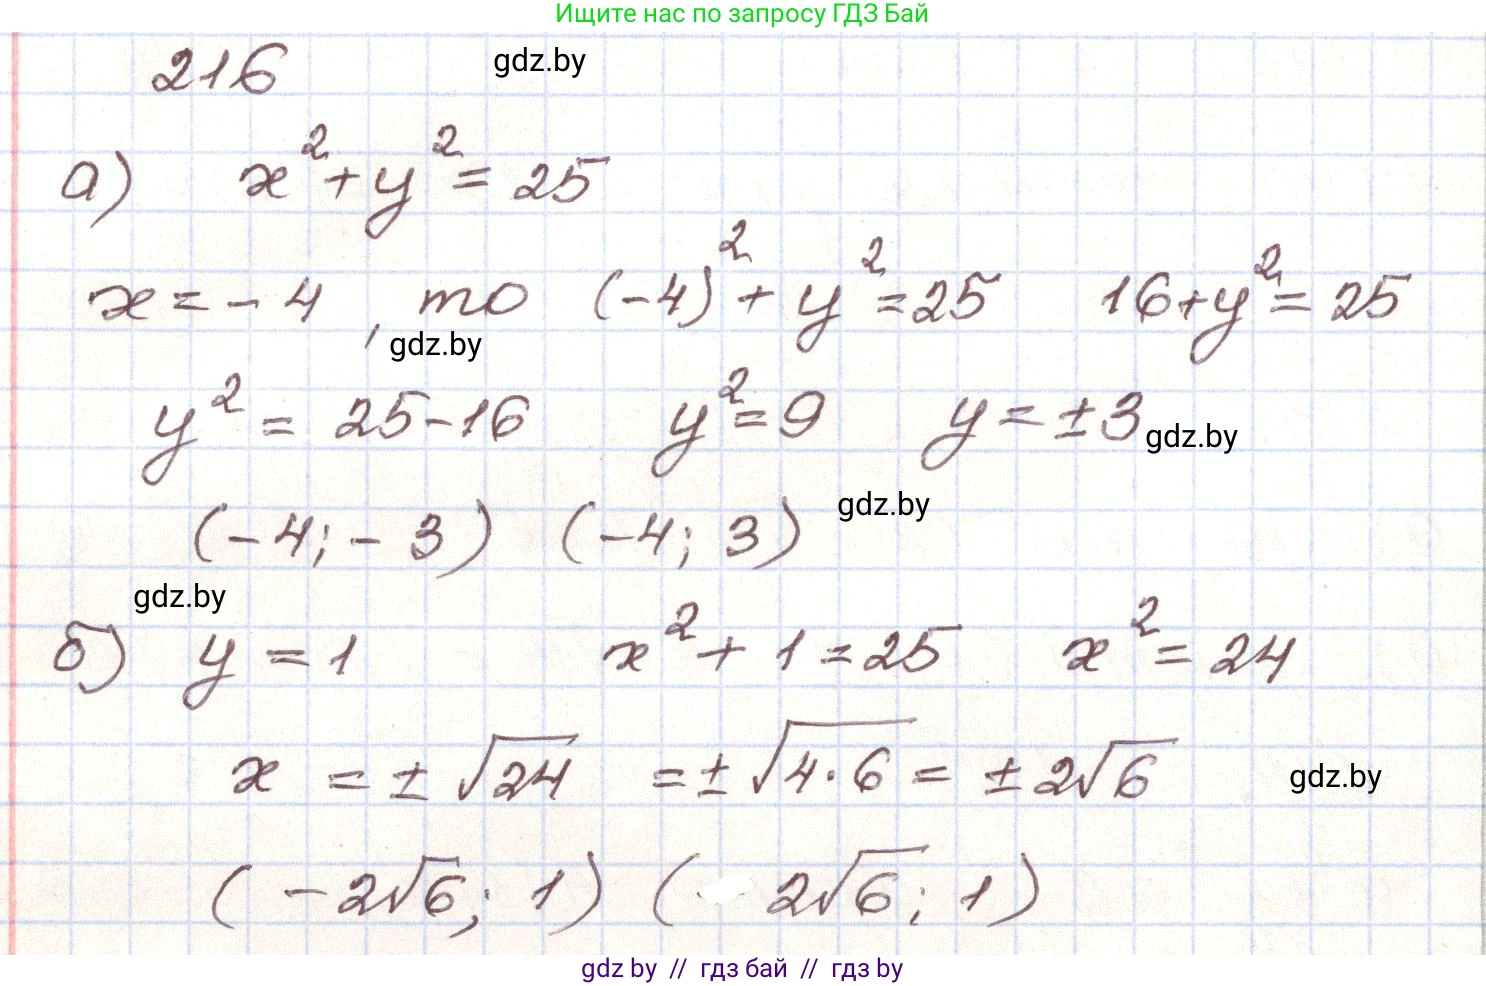 Ищите нас по запросу ГДЗ Бай
216 gdz.by
а) x² + y² = 25
x = - 4, то (-4)² + y² = 25 16 + y² = 25
gdz.by
y² = 25 - 16 y² = 9 y = ±3 gdz.by
(-4; - 3) (-4; 3) gdz.by
gdz.by
б) y = 1 x² + 1 = 25 x² = 24
x = ± √24 = ± √4·6 = ± 2√6 gdz.by
(-2√6; 1) ( 2√6; 1)
gdz by // гдз бай // гдз by